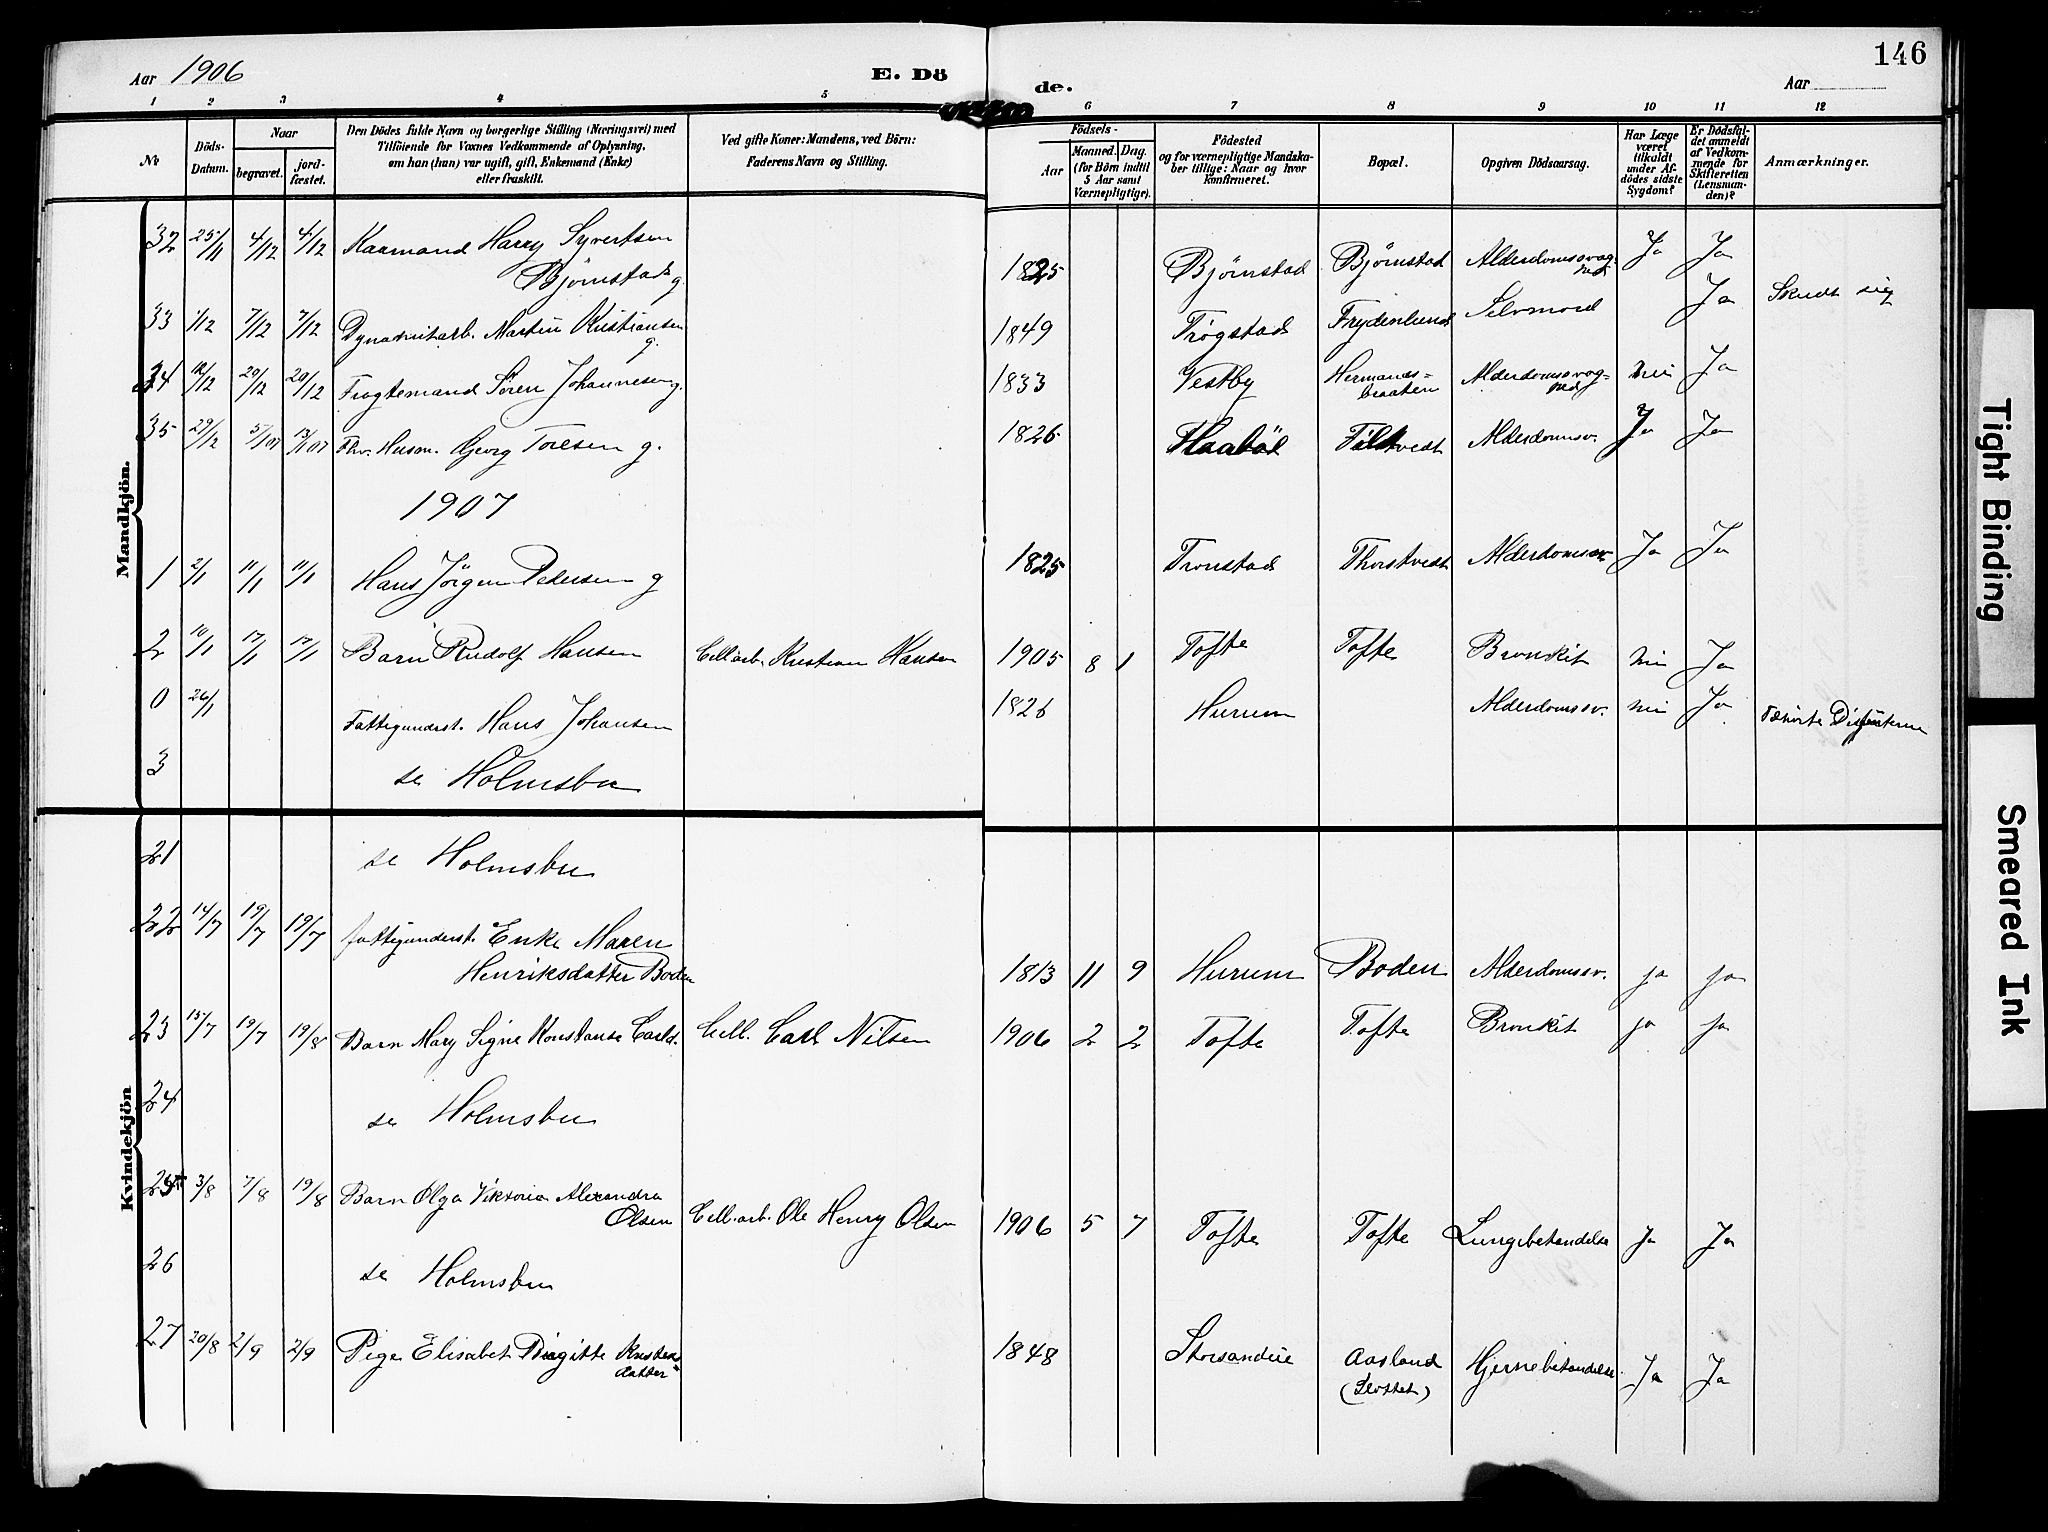 Aar 1906 E. Dö de. Aar 146
1 2 3 4 5 6 7 8 9 10 11 12
No
Döds-Datum.
Naar
begravet. jordfæstet.
Den Dödes fulde Navn og borgerlige Stilling (Næringsvei) med
Tilföiende for Voxnes Vedkommende af Oplysning,
om han (hun) var ugift, gift, Enkemand (Enke)
eller fraskilt.
Ved gifte Koner: Mandens, ved Börn:
Faderens Navn og Stilling.
Födsels-
Aar Maaned. Dag.
(for Börn indtil
5 Aar samt
Værnepligtige).
Födested
og for værnepligtige Mandska-
ber tillige: Naar og hvor
konfirmeret.
Bopæl.
Opgiven Dödsaarsag.
Har Læge
været
tilkaldt
under Af-
dödes sidste
Sygdom?
Er Dödsfal-
det anmeldt
af Vedkom-
mende for
Skifteretten
(Lensman-
den)?
Anmærkninger.
Mandkjön.
32 25/11 4/12 4/12 Kaarmand Harry Syvertsen
Bjørnstad g. 1825 Bjørnstad Bjørnstad Alderdomssvag-
hed Ja Ja
33 1/12 7/12 7/12 Dynamitarb. Martin Kristiansen
g. 1849 Trøgstad Frydenlund Selvmord Ja Skudt sig
34 12/12 20/12 20/12 Fragtemand Sören Johannesen g. 1833 Vestby Hermands=
braaten Alderdomssvag-
hed nei Ja
35 29/12 5/1 07 13/1 07 Fhv. Husm. Georg Toresen g. 1826 Haabøl Tilstvedt Alderdomssv. Ja Ja
1907
1 2/1 11/1 11/1 Hans Jörgen Pedersen g 1825 Tronstad Thorstvedt Alderdomssv. Ja Ja
2 10/1 17/1 17/1 Barn Rudolf Hansen Cell arb. Kristian Hansen 1905 8 1 Tofte Tofte Bronkit nei Ja
0 26/1 Fattigunderst. Hans Johansen 1826 Hurum Alderdomssv. nei Ja
3 se Holmsbu
Kvindekjön
21 se Holmsbu
22 14/7 19/7 19/7 fattigunderst. Enke Maren
Henriksdatter Boden 1813 11 9 Hurum Boden Alderdomssv. ja ja
23 15/7 19/7 19/8 Barn Mary Signe Konstanse Carls. Cell. Carl Nilsen 1906 2 2 Tofte Tofte Bronkit ja ja
24 se Holmsbu
25 3/8 7/8 19/8 Barn Olga Viktoria Alexandra
Olsen Cell.arb. Ole Henry Olsen 1906 5 7 Tofte Tofte Lungebetændelse Ja Ja
26 se Holmsbu
27 20/8 2/9 2/9 Pige Elisabet Birgitte Kristens=
datter 1848 Storsandene Aasland
(Slottet) Hjernebetændelse Ja Ja
Tight Binding
Smeared Ink